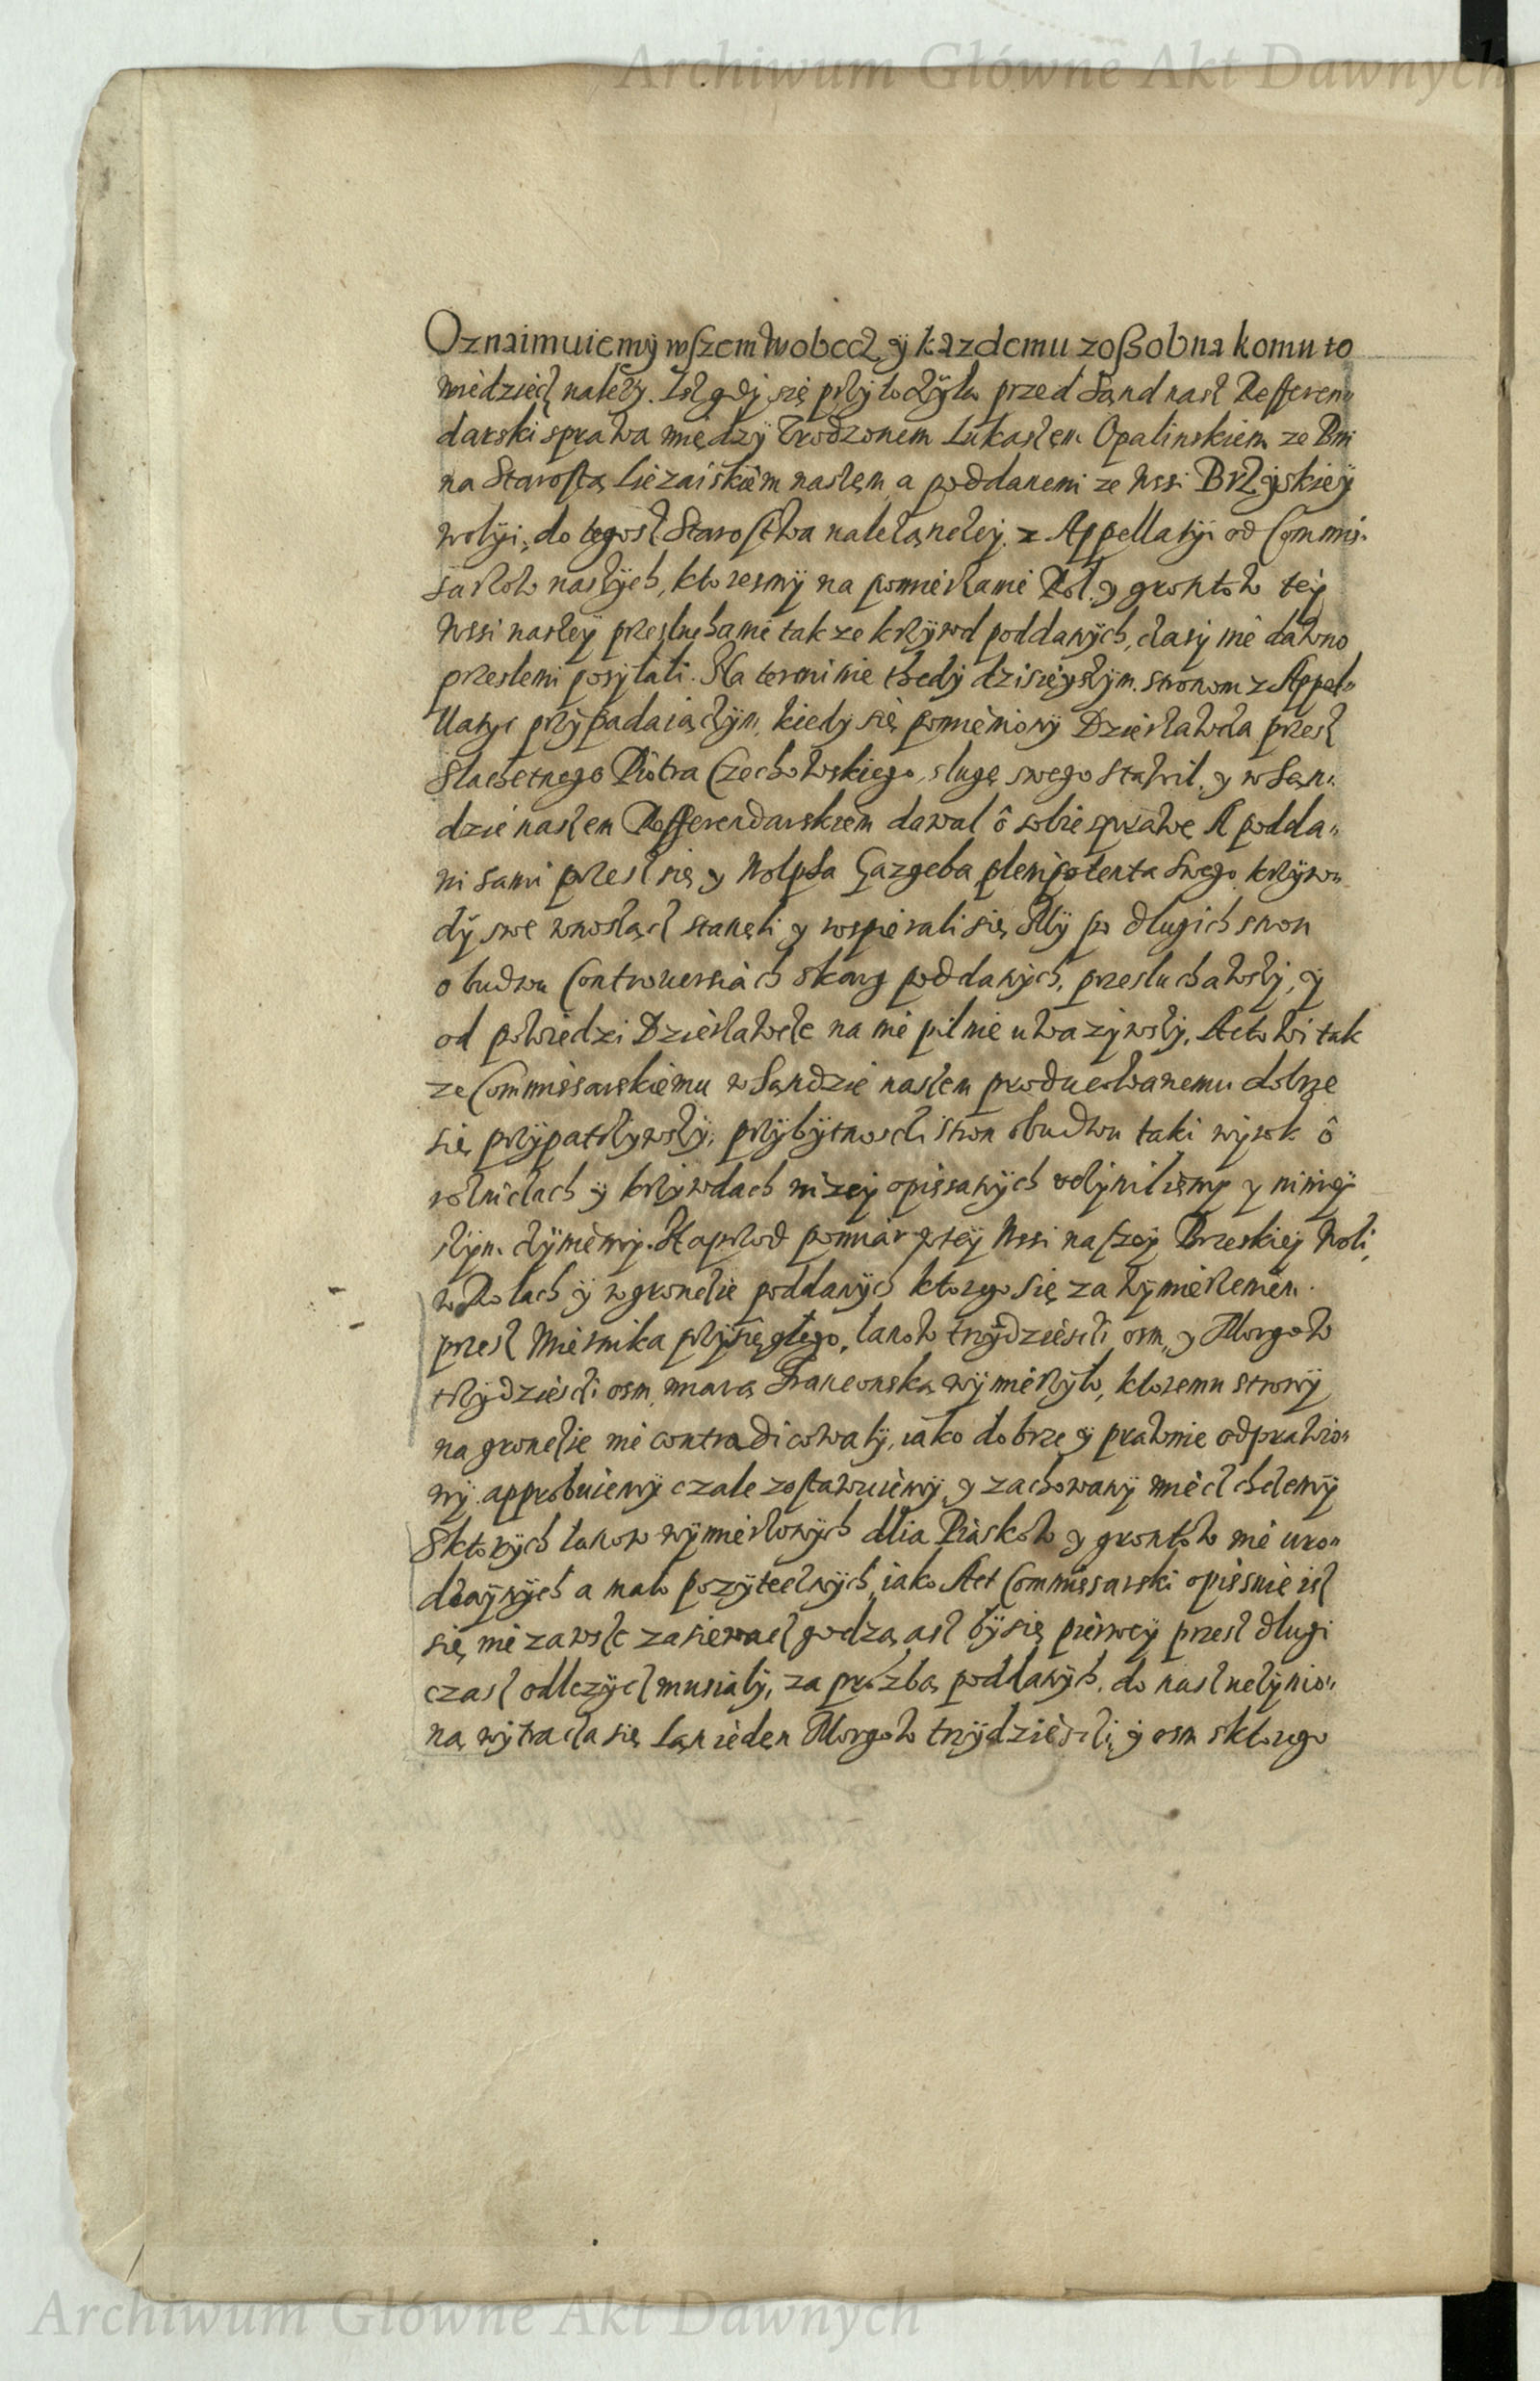 Archiwum Główne Akt Dawnych
Oznaimuiemy wszem wobecz y kazdemu zoßobna komu to
wiedziecz nalezy. Isz gdy się przytoczyła przed Sąnd nasz Refferen„
darski sprawa między Urodzonem Lukaszem Opalinskiem ze Bni
na Starostą Liezaiskiem naszem, a poddanemi ze wssi Brzyskiey
wolyi, do tegosz Starostwa nalezącey, z Appellatyi od Commis„
sarzow naszych, ktoresmy na pomierzanie Rol y grontow tey
wssi naszey przesłuchanie takze krzywd poddanych, czasy nie dawno
przeslemi posyłali. Na terminie thedy dzisieyszym stronom z Appel„
llatyi przypadaiączym, kiedy się pomieniony Dzierzawcza przesz
Slachetnego Piotra Czechowskiego, slugę swego stawil, y w Sąn„
dzie naszem Refferendarskiem dawal ô sobie sprawę A podda„
ni sami przesz się y Gazgeba plenipotenta swego krzyw„
dy swe wnosząc stanęli y wspierali się My po dlugich stron
obudwu Controuersiach skarg poddanych, przesluchawszy, y
od powiedzi Dzierzawcze na nie pilnie uwazywszy, Actowi tak
ze Commissarskiemu w Sąndzie naszem producowanemu dobrze
się przypatrzywszy, przybytnosczi stron obudwu taki wyrok ô
rolniczach y krzywdach nizey opissanych uczynilismy y niniey
szym czyniemy. Naprzod pomiar wtey Wssi naszey Brzeskiey Woli,
w Rolach y w groncie poddanych ktorego się za wymierzeniem
przesz Miernika przysięgłego, lanow trzydziesczi osm, y Morgow
trzydziesczi osm, miarą Franconską wymierzyło, ktoremu strony
na groncie nie contradicowały, iako dobrze y prawnie odprawio„
ny approbuiemy czale zostawuiemy, y zachowany miecz chcemy
Sktorych lanow wymierzonych dlia Piaskow y grontow nie uro„
dzaynych a mało pozytecznych, iako Act Commissarski opissuie isz
się nie zawsze zasiewacz godzą asz by się pierwey przesz dlugi
czasz odlezycz musiały, za prozbą poddanych, do nasz uczynio„
ną wytracza się Lan ieden Morgow trzydziesczi y osm sktorego
Archiwum Główne Akt Dawnych